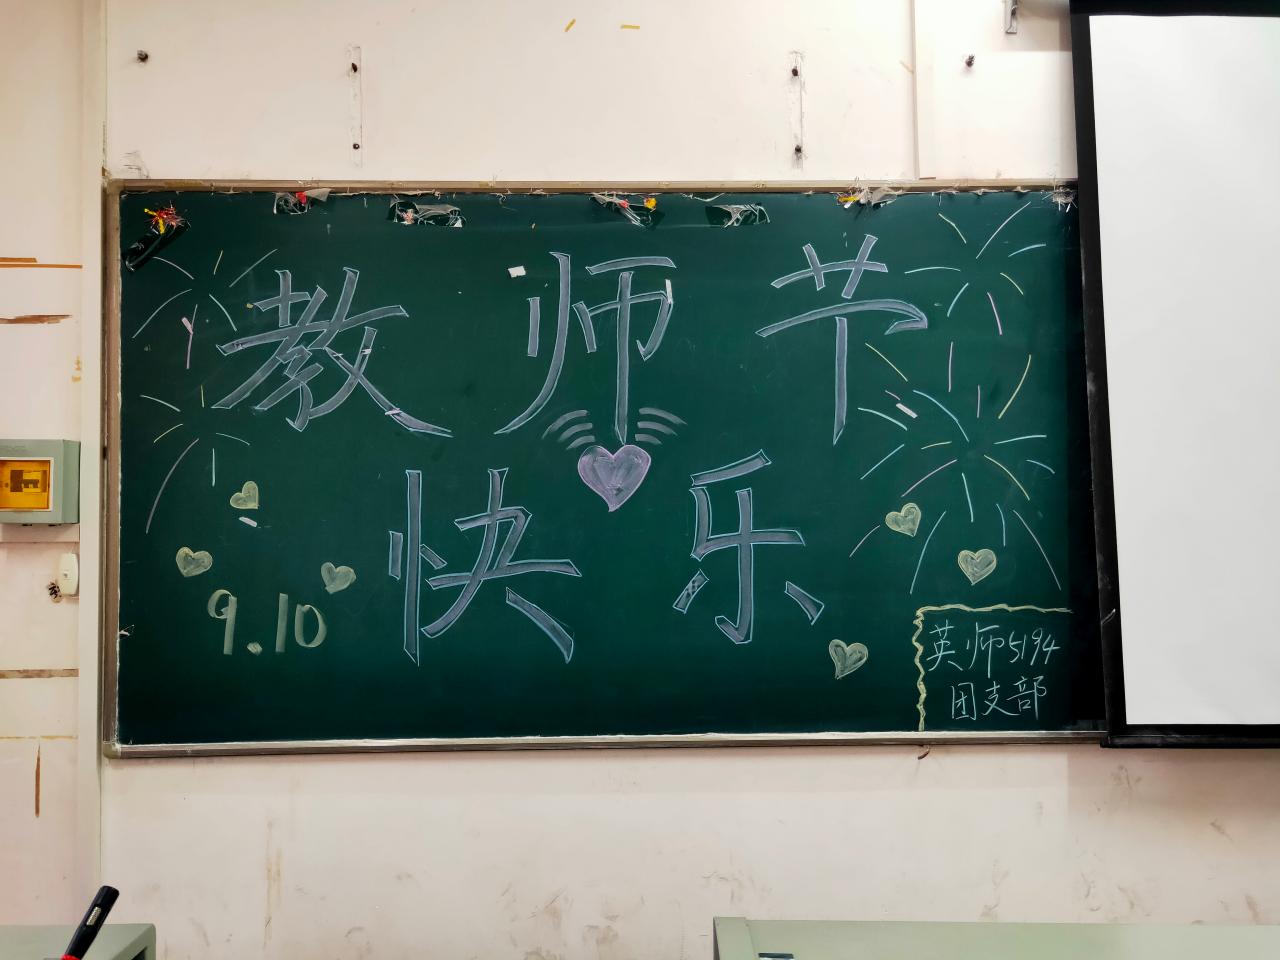 教师节
快乐
9.10
英师5194
团支部